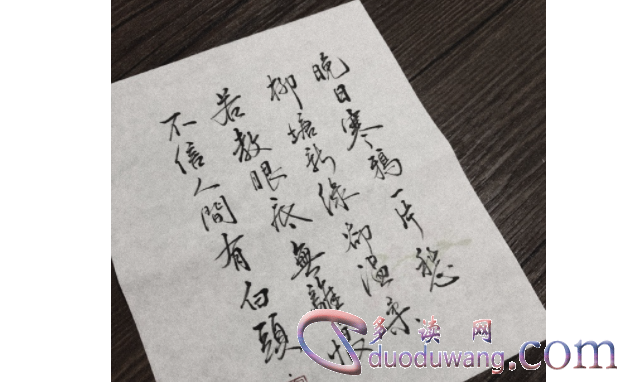 晚日寒鴉一片愁
柳塘新綠卻温柔
若教眼底無離恨
不信人間有白頭
多读网
duoduwang.com